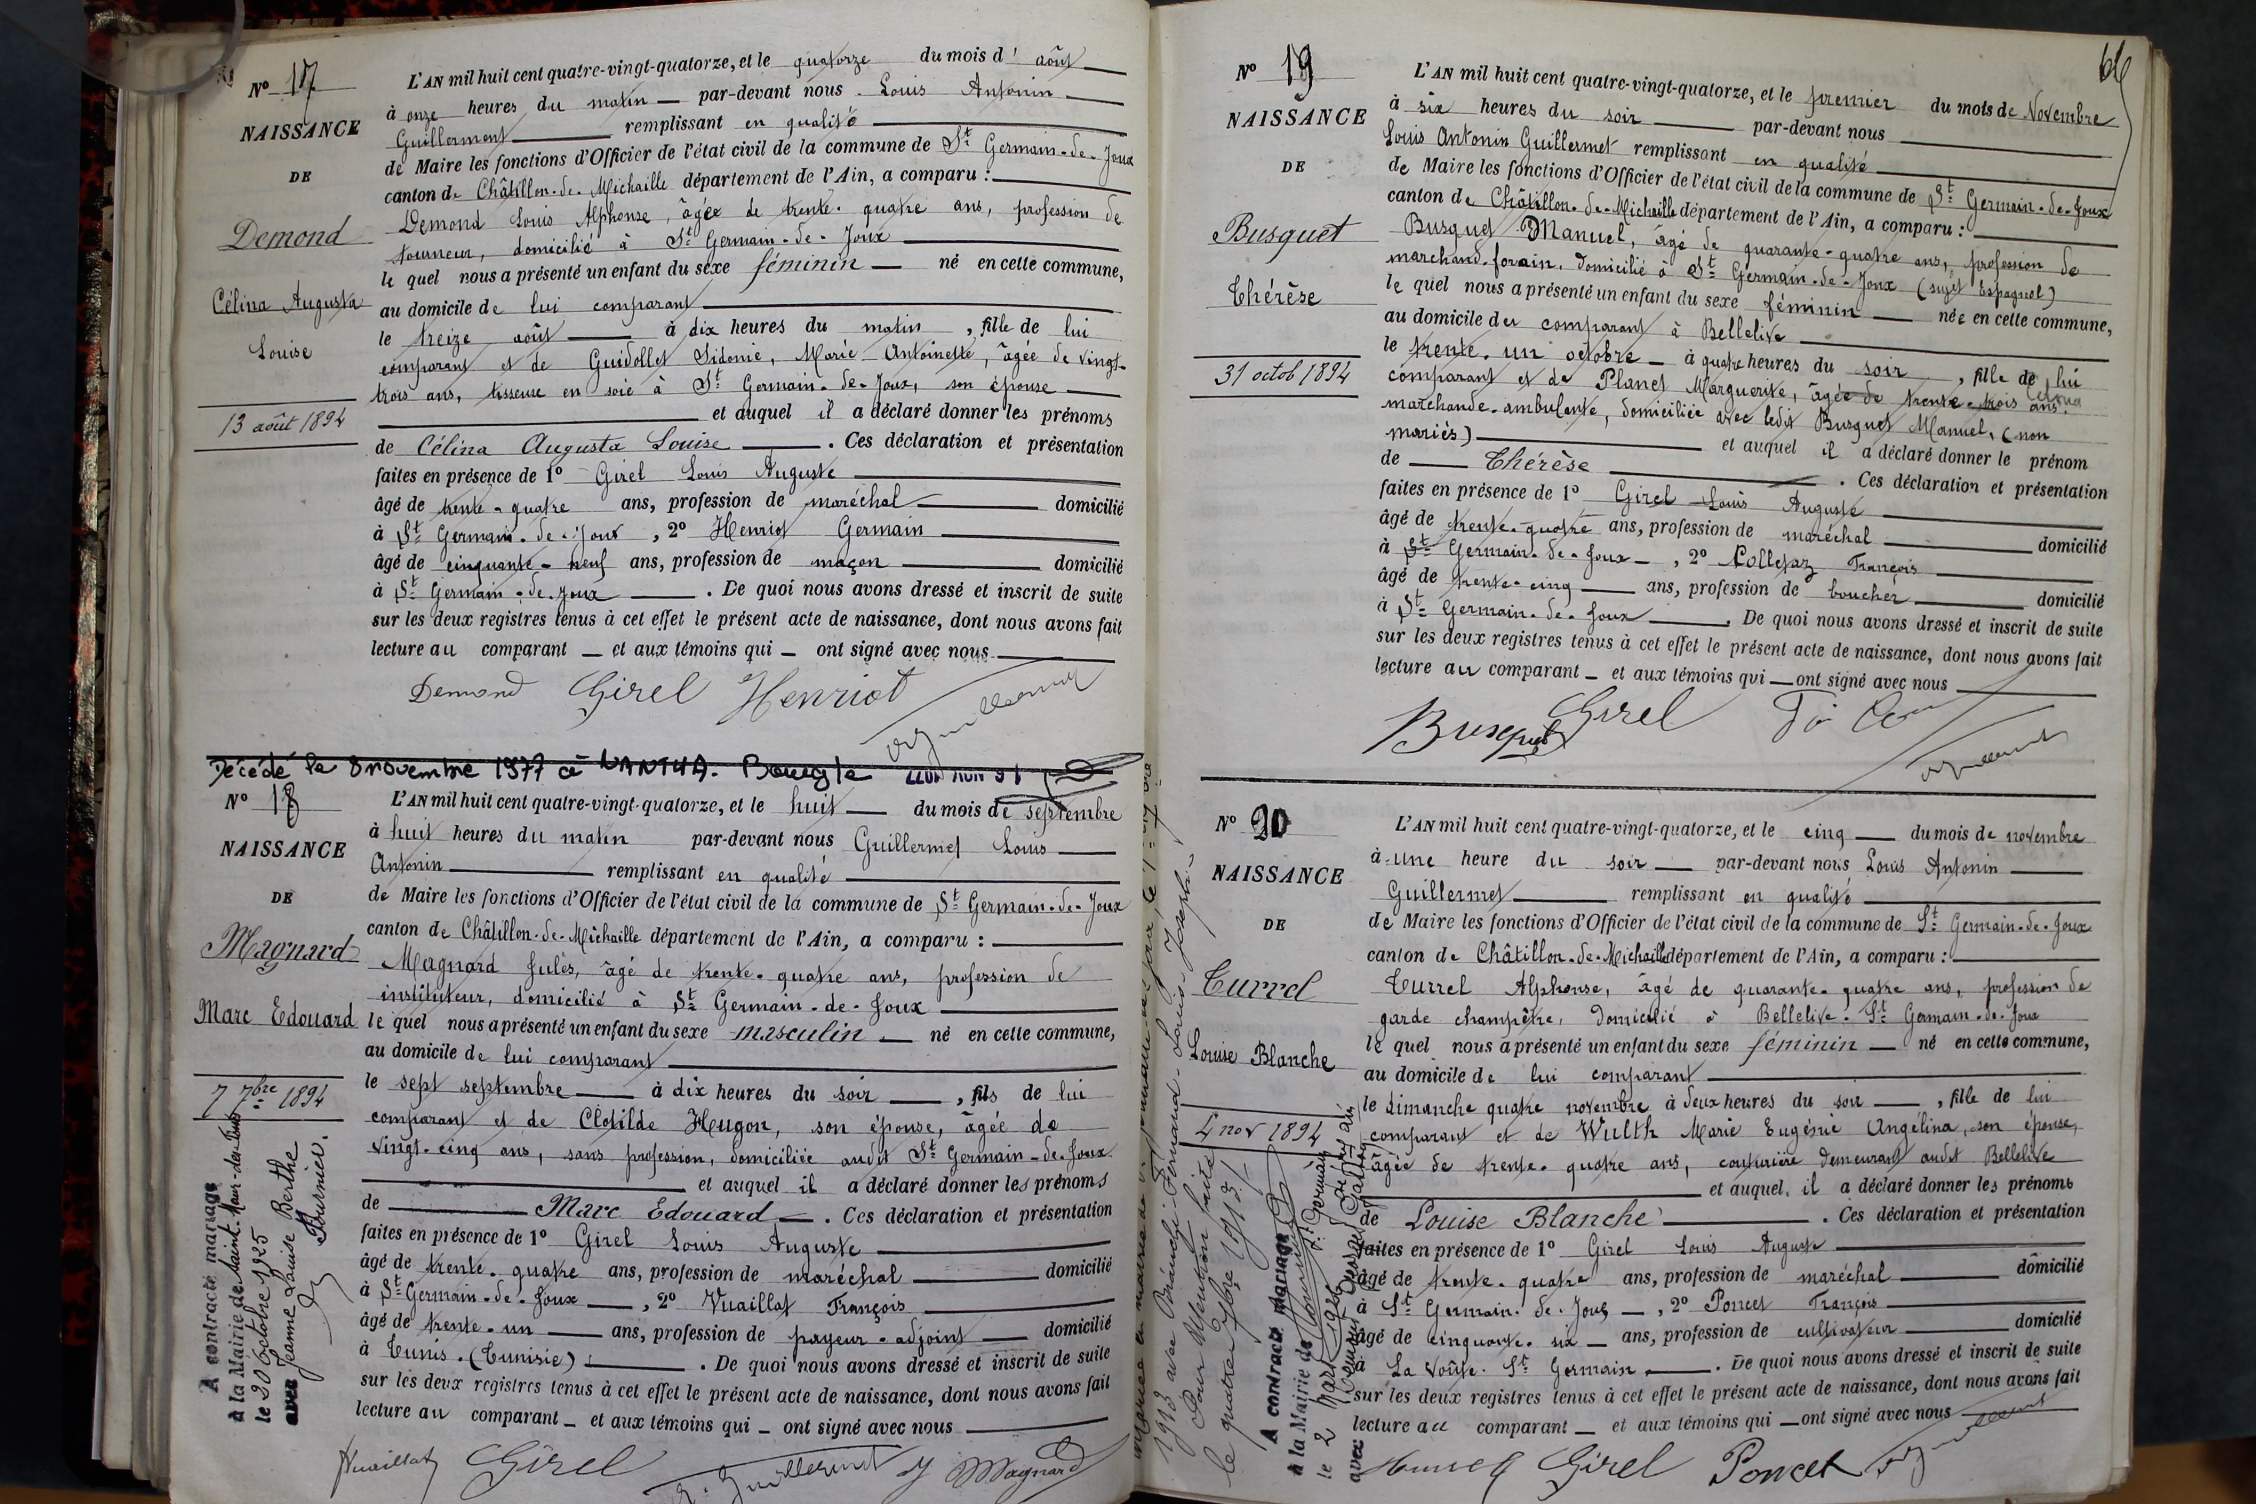 Nº 17
NAISSANCE
DE
Demond
Célina Augusta
Louise
13 août 1894
L'AN mil huit cent quatre-vingt-quatorze, et le quatorze du mois d' août
à onze heures du matin par-devant nous Louis Antonin
Guillermet remplissant en qualité
de Maire les fonctions d'Officier de l'état civil de la commune de St Germain-de-Joux
canton de Châtillon-de-Michaille département de l'Ain, a comparu :
Demond Louis Alphonse, âgée de trente-quatre ans, profession de
tourneur, domicilié à St Germain-de-Joux
le quel nous a présenté un enfant du sexe féminin né en cette commune,
au domicile de lui comparant
le treize août à dix heures du matin, fille de lui
comparant et de Guidollet Sidonie, Marie-Antoinette, âgée de vingt-
trois ans, tisseuse en soie à St Germain-de-Joux, son épouse
et auquel il a déclaré donner les prénoms
de Célina Augusta Louise. Ces déclaration et présentation
faites en présence de 1º Girel Louis Auguste
âgé de trente-quatre ans, profession de maréchal domicilié
à St Germain-de-Joux, 2º Henriot Germain
âgé de cinquante-neuf ans, profession de maçon domicilié
à St Germain-de-Joux. De quoi nous avons dressé et inscrit de suite
sur les deux registres tenus à cet effet le présent acte de naissance, dont nous avons fait
lecture au comparant et aux témoins qui ont signé avec nous
Demond Girel Henriot
Décédé le 8 novembre 1977 à NANTUA.
Nº 18
NAISSANCE
DE
Magnard
Marc Edouard
7 7bre 1894
A contracté mariage
à la Mairie de Saint-Maur-des-Fossés
le 20 Octobre 1925
avec Jeanne Louise Berthe
Fournier.
L'AN mil huit cent quatre-vingt-quatorze, et le huit du mois de septembre
à huit heures du matin par-devant nous Guillermet Louis
Antonin remplissant en qualité
de Maire les fonctions d'Officier de l'état civil de la commune de St Germain-de-Joux
canton de Châtillon-de-Michaille département de l'Ain, a comparu :
Magnard Jules, âgé de trente-quatre ans, profession de
instituteur, domicilié à St Germain-de-Joux
le quel nous a présenté un enfant du sexe masculin né en cette commune,
au domicile de lui comparant
le sept septembre à dix heures du soir, fils de lui
comparant et de Clotilde Hugon, son épouse, âgée de
vingt-cinq ans, sans profession, domiciliée audit St Germain-de-Joux.
et auquel il a déclaré donner les prénoms
de Marc Edouard. Ces déclaration et présentation
faites en présence de 1º Girel Louis Auguste
âgé de trente-quatre ans, profession de maréchal domicilié
à St Germain-de-Joux, 2º Vuaillat François
âgé de trente-un ans, profession de payeur-adjoint domicilié
à Tunis. (Tunisie). De quoi nous avons dressé et inscrit de suite
sur les deux registres tenus à cet effet le présent acte de naissance, dont nous avons fait
lecture au comparant et aux témoins qui ont signé avec nous
Vuaillat Girel Guillermet J Magnard
Nº 19
NAISSANCE
DE
Busquet
Thérèse
31 octob 1894
L'AN mil huit cent quatre-vingt-quatorze, et le premier du mois de Novembre
à six heures du soir par-devant nous
Louis Antonin Guillermet remplissant en qualité
de Maire les fonctions d'Officier de l'état civil de la commune de St Germain-de-Joux
canton de Châtillon-de-Michaille département de l'Ain, a comparu :
Busquet Manuel, âgé de quarante-quatre ans, profession de
marchand-forain, domicilié à St Germain-de-Joux (sujet Espagnol)
le quel nous a présenté un enfant du sexe féminin née en cette commune,
au domicile du comparant à Bellelive
le trente-un octobre à quatre heures du soir, fille de lui
comparant et de Planet Marguerite, âgée de trente-trois ans,
marchande-ambulante, domiciliée avec ledit Busquet Manuel, (non
mariés) et auquel il a déclaré donner le prénom
de Thérèse. Ces déclaration et présentation
faites en présence de 1º Girel Louis Auguste
âgé de trente-quatre ans, profession de maréchal domicilié
à St Germain-de-Joux, 2º Colletaz François
âgé de trente-cinq ans, profession de boucher domicilié
à St Germain-de-Joux. De quoi nous avons dressé et inscrit de suite
sur les deux registres tenus à cet effet le présent acte de naissance, dont nous avons fait
lecture au comparant et aux témoins qui ont signé avec nous
Busquet Girel
Nº 20
NAISSANCE
DE
Turrel
Louise Blanche
4 nov 1894
Pour Mention faite
le quatre 7bre 1913
A contracté mariage
à la Mairie de
le 2 Mars
avec
L'AN mil huit cent quatre-vingt-quatorze, et le cinq du mois de novembre
à une heure du soir par-devant nous Louis Antonin
Guillermet remplissant en qualité
de Maire les fonctions d'Officier de l'état civil de la commune de St Germain-de-Joux
canton de Châtillon-de-Michaille département de l'Ain, a comparu :
Turrel Alphonse, âgé de quarante-quatre ans, profession de
garde champêtre, domicilié à Bellelive-St Germain-de-Joux
le quel nous a présenté un enfant du sexe féminin né en cette commune,
au domicile de lui comparant
le dimanche quatre novembre à deux heures du soir, fille de lui
comparant et de Wulth Marie Eugénie Angélina, son épouse,
âgée de trente-quatre ans, couturière demeurant audit Bellelive
et auquel il a déclaré donner les prénoms
de Louise Blanche. Ces déclaration et présentation
faites en présence de 1º Girel Louis Auguste
âgé de trente-quatre ans, profession de maréchal domicilié
à St Germain-de-Joux, 2º Poncet François
âgé de cinquante-six ans, profession de cultivateur domicilié
à La Voûte-St Germain. De quoi nous avons dressé et inscrit de suite
sur les deux registres tenus à cet effet le présent acte de naissance, dont nous avons fait
lecture au comparant et aux témoins qui ont signé avec nous
Girel Poncet